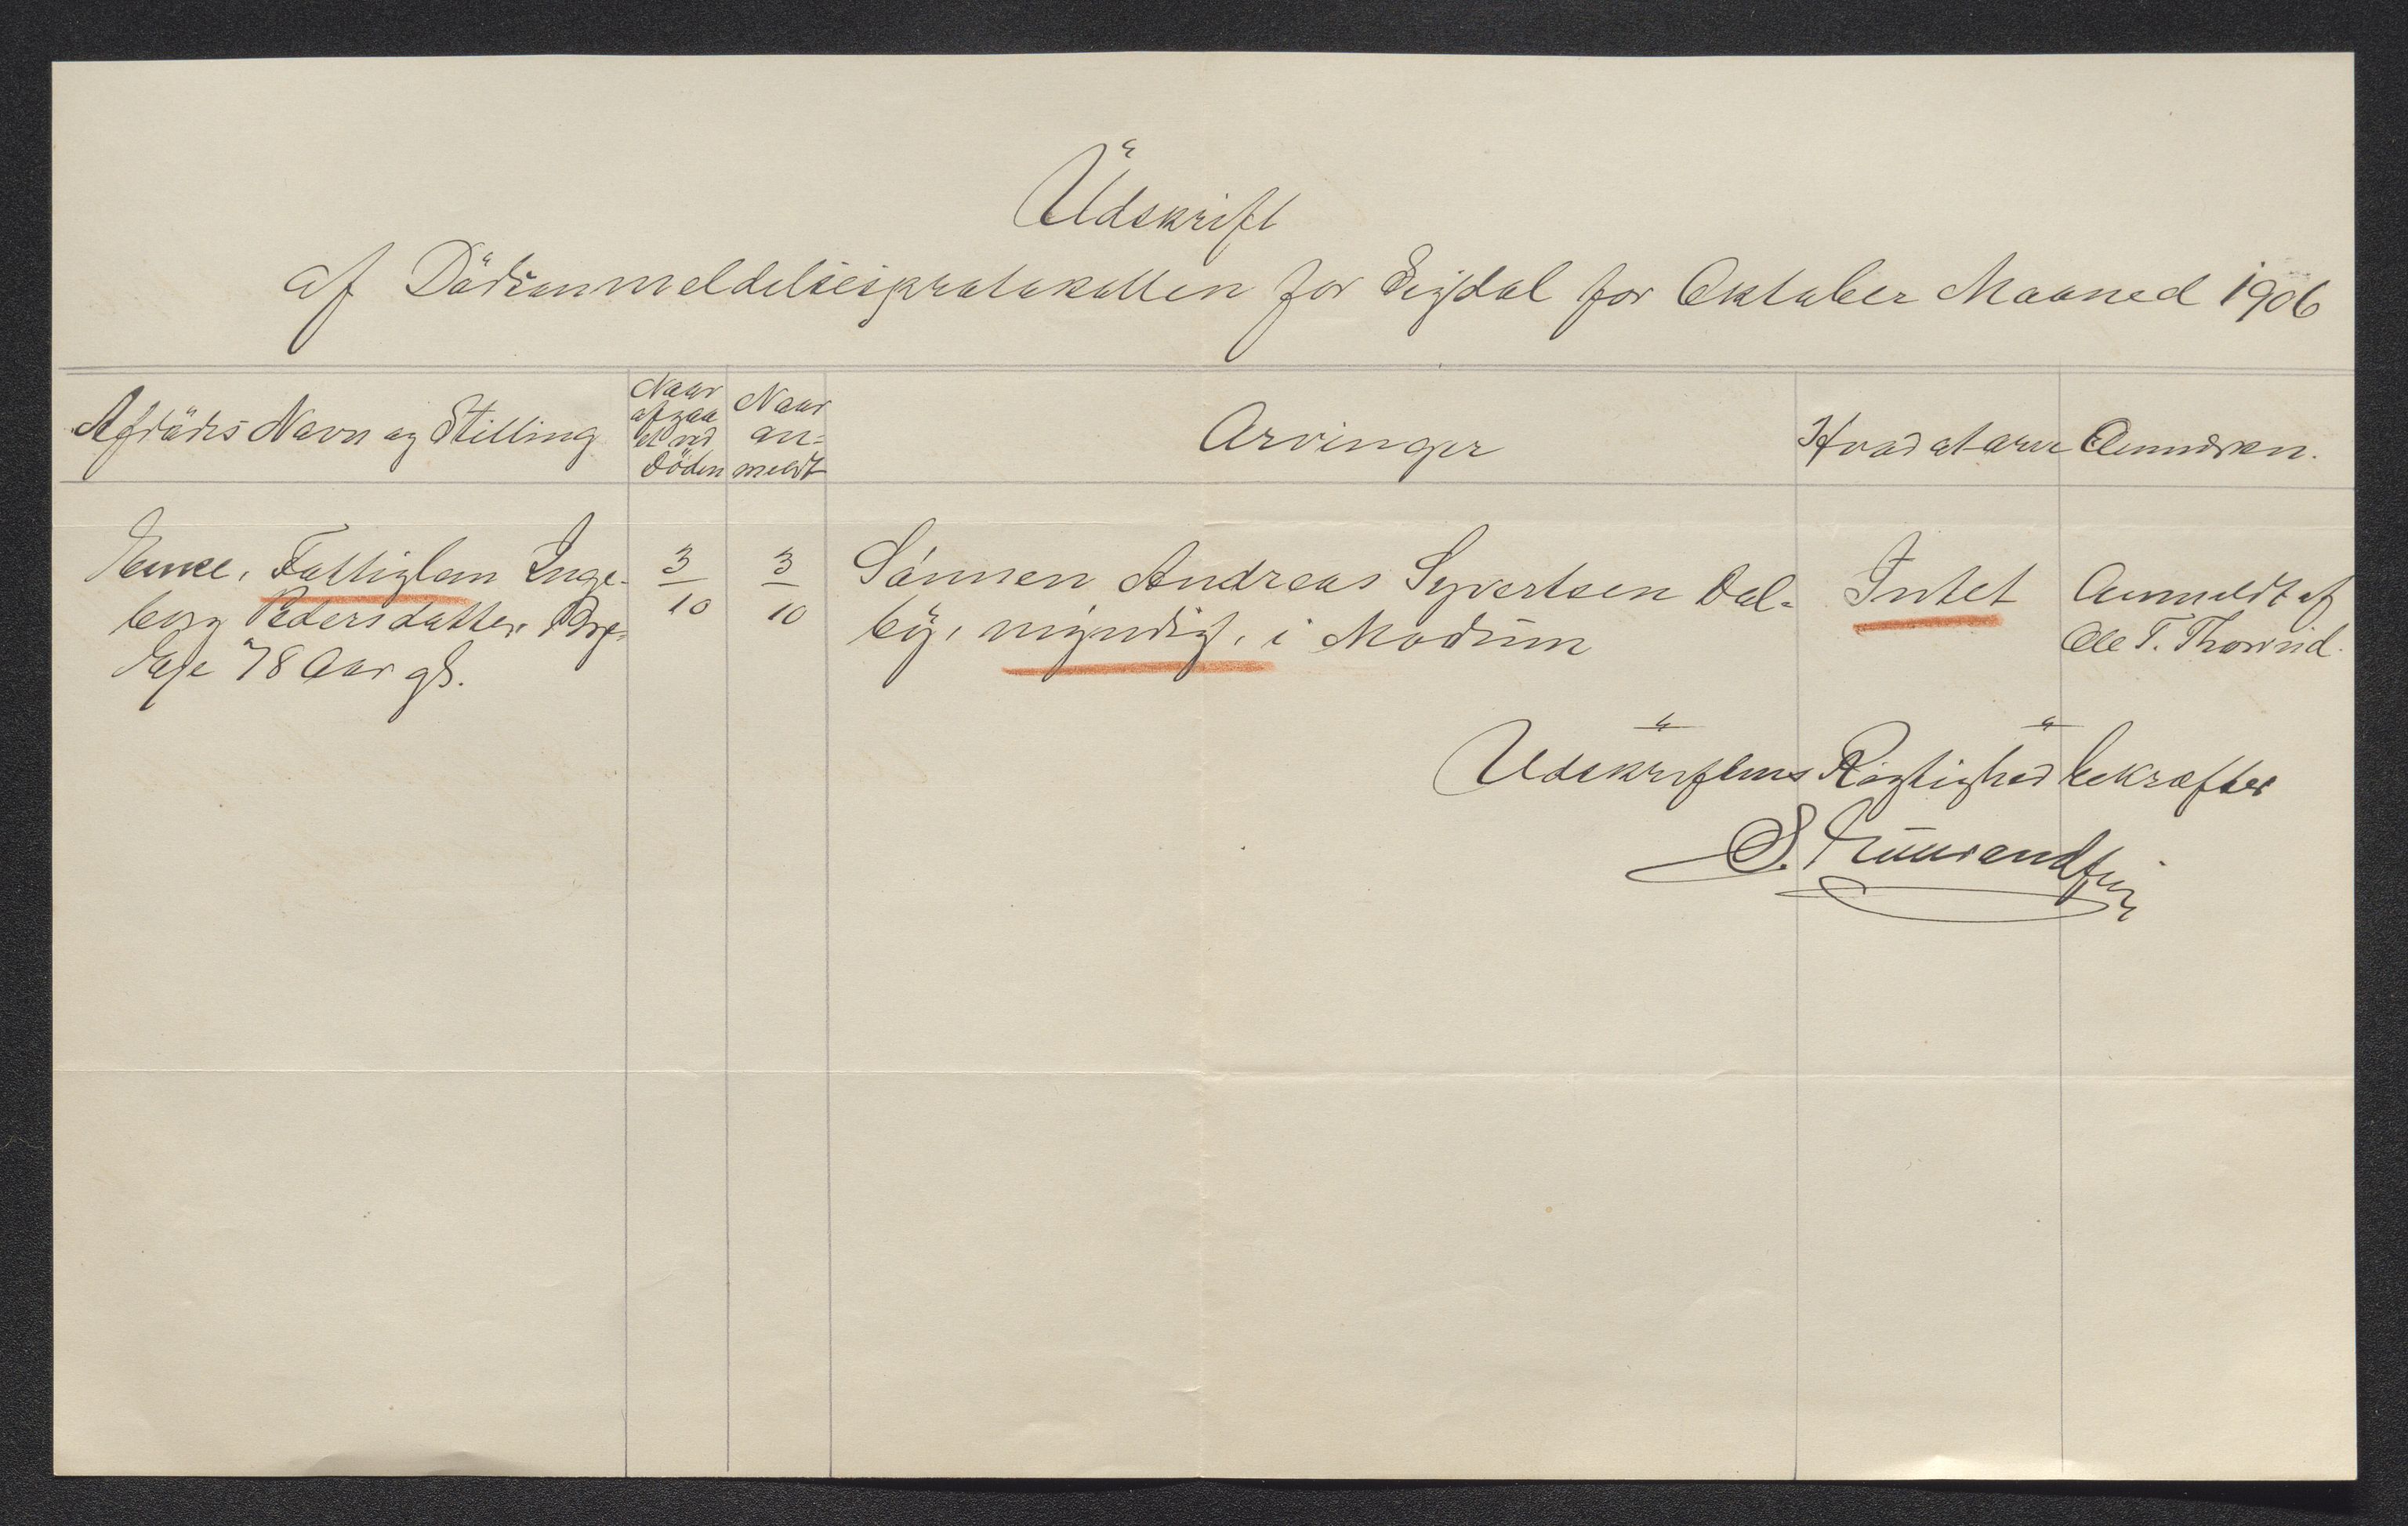 Udskrift
af Dødsanmeldelsesprotokollen for Sigdal for Oktober Maaned 1906
Afdødes Navn og Stilling
Naar
afgaa
et ved
Døden
Naar
an-
meldt
Arvinger
Hvad at arve
Anmærkn.
Enke, Fattiglem Inge-
borg Pedersdatter
Eje 78 Aar gl.
3
10
3
10
Sønnen Andreas Syvertsen Dal-
by, myndig, i Modum
Intet
Anmeldt af
Ole T.
Udskriftens Rigtighed bekræfter
S.